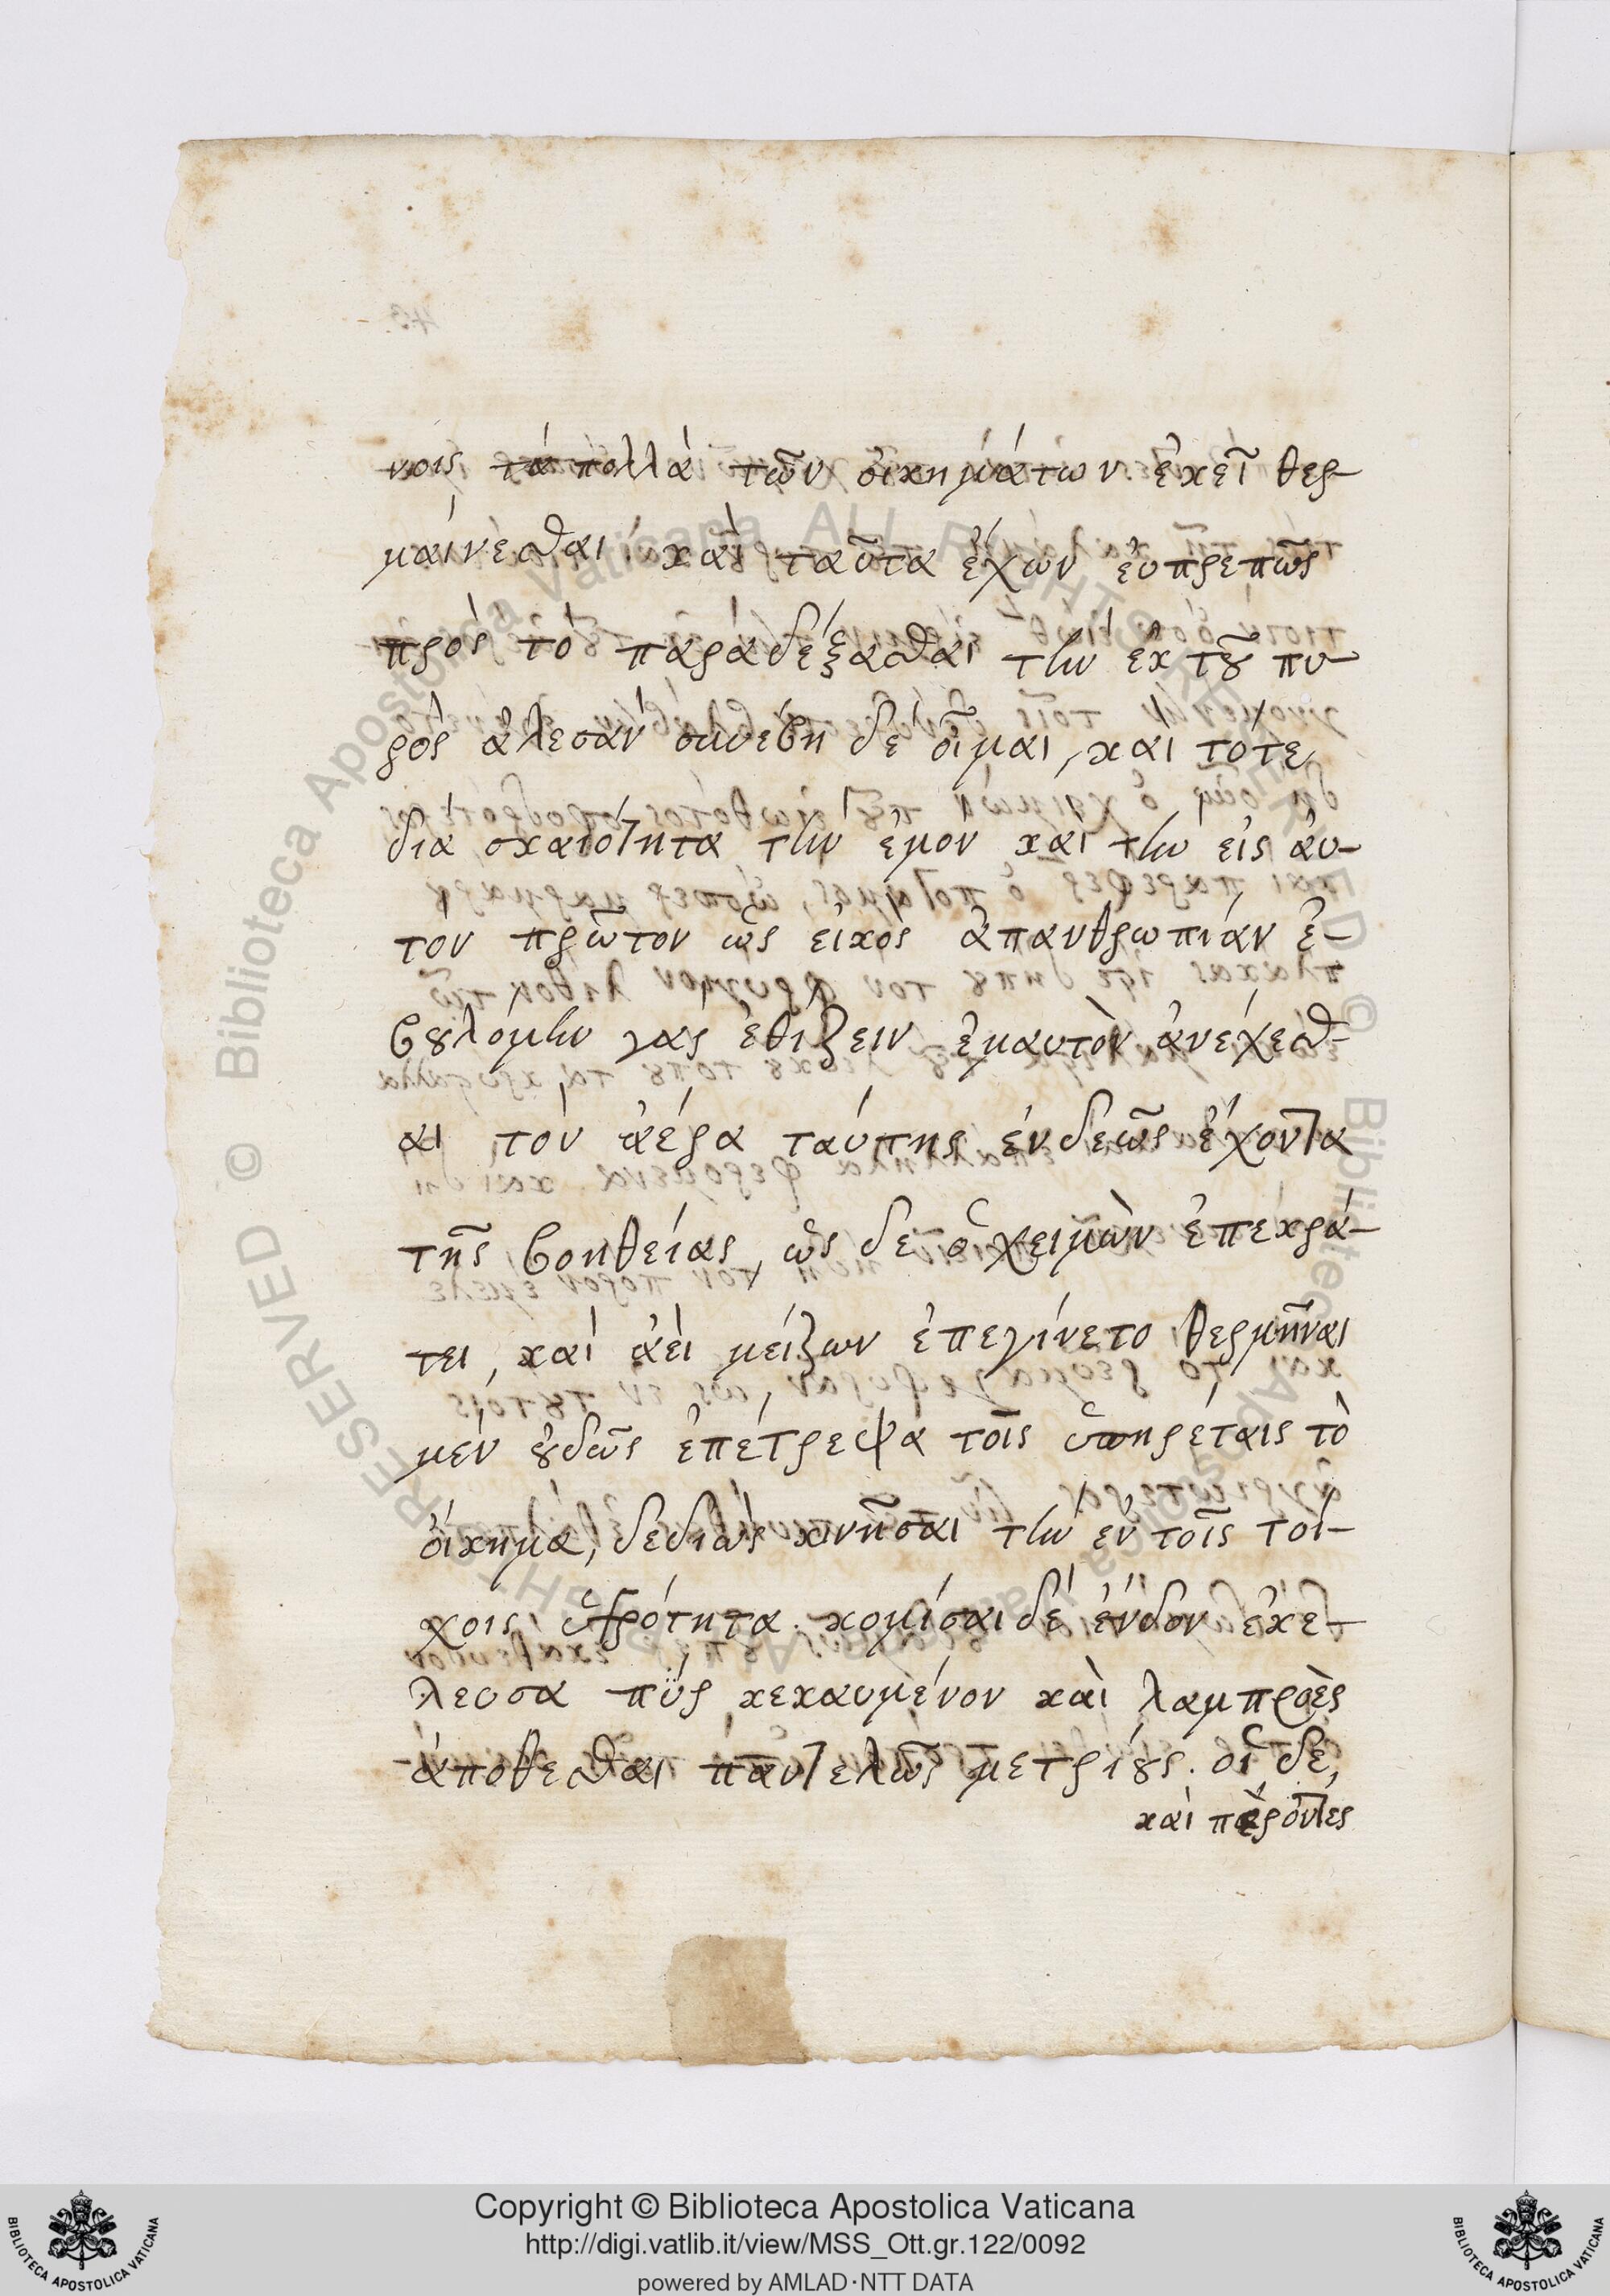 νοις τὰ πολλὰ τῶν οἰκημάτων ἐκεῖ θερ-
μαίνεσθαι καὶ ταῦτα ἔχων εὐπρεπῶς
πρὸς τὸ παραδέξασθαι τὴν ἐκ τοῦ πυ-
ρὸς ἀλέσαν συνέβη δὲ οἶμαι, καὶ τότε
διὰ σκαιότητα τὴν ἐμὸν καὶ τὴν εἰς αὐ-
τον πρῶτον ὡς εἰκὸς ἀπανθρωπίαν ἐ-
βουλόμην γὰρ ἐθίζειν ἐμαυτὸν ἀνέχεσθ-
αι τὸν ἀέρα ταύτης ἐνδεῶς ἔχοντα
τῆς βοηθείας, ὡς δὲ ὁ χειμὼν ἐπεκρά-
τει, καὶ ἀεὶ μείζων ἐπεγίνετο θερμῆναι
μὲν οὐδῶς ἐπέτρεψα τοῖς ὑπηρέταις τὸ
οἴκημα, δεδιὼς κινῆσαι τὴν ἐν τοῖς τοί-
χοις ὑγρότητα. κομίσαι δὲ ἔνδον ἐκέ-
λευσα πῦρ κεκαυμένον καὶ λαμπροὲς
ἀποθέσθαι παντελῶς μετρίους. οἱ δὲ,
καὶ παρόντες
Copyright © Biblioteca Apostolica Vaticana
http://digi.vatlib.it/view/MSS_Ott.gr.122/0092
powered by AMLAD·NTT DATA
BIBLIOTECA APOSTOLICA VATICANA
BIBLIOTECA APOSTOLICA VATICANA